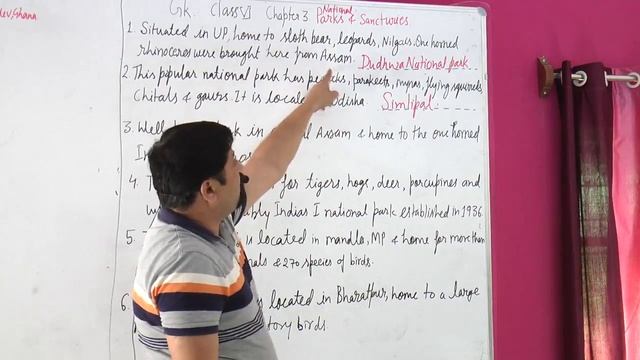 dev, Ghana
Gk Class VI Chapter 3 National Parks & Sanctuaries
1. Situated in UP, home to sloth bear, leopards, Nilgais. One horned
rhinoceros were brought here from Assam. Dudhwa National park
2. This popular national park has pe cks, parakeets, mynas, flying squirrels
Chitals & gaurs. It is locate disha Simlipal
3. Well k in Assam & home to the one horned
In
4. T for tigers, hogs, deer, porcupines and
w bly Indias I national park established in 1936.
5. is located in mandla, MP & home for more than
als & 270 species of birds.
6. s located in Bharatpur, home to a large
tory birds.